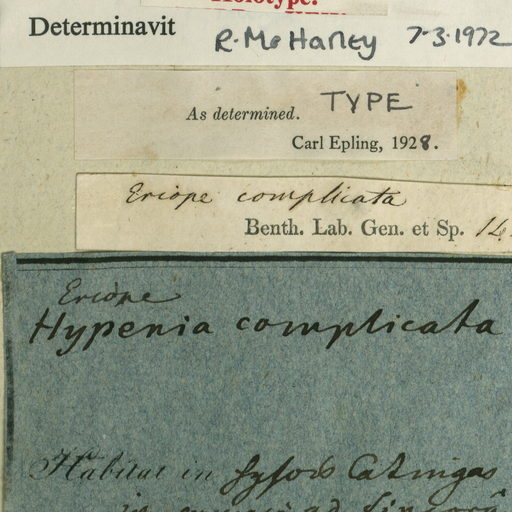 Holotype.
Determinavit R. Mc Harley 7-3-1972
As determined. TYPE
Carl Epling, 1928.
Eriope complicata
Benth. Lab. Gen. et Sp. 14
Eriope
Hypenia complicata
Habitat in
in ad